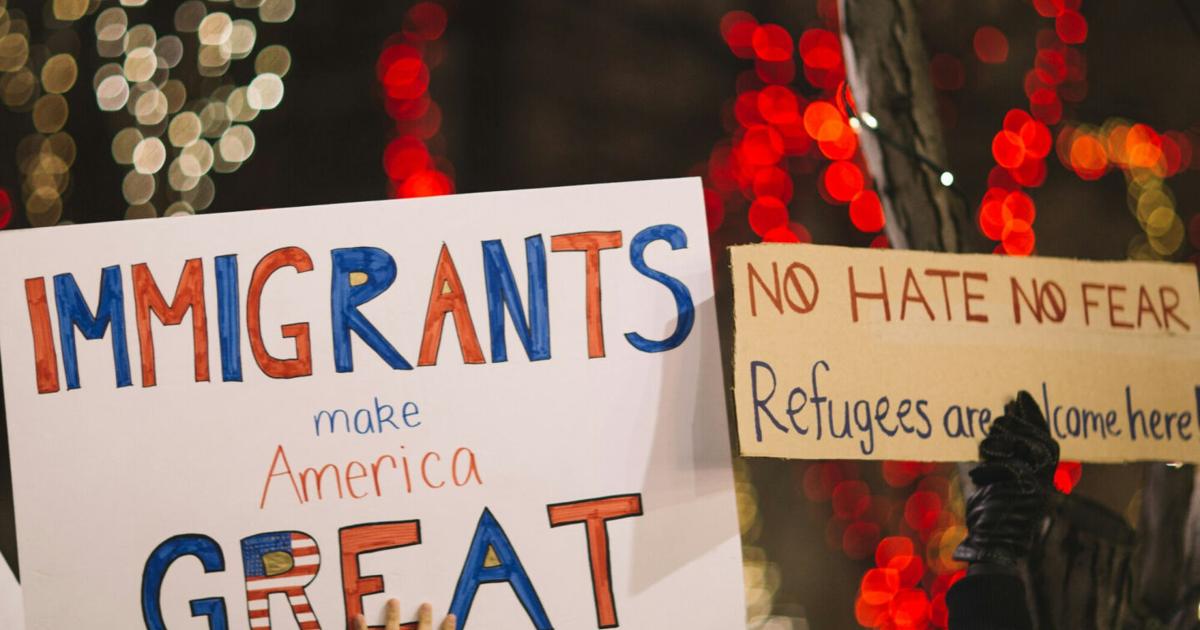 IMMIGRANTS
make
America
GREAT
NO HATE NO FEAR
Refugees are lcome here!